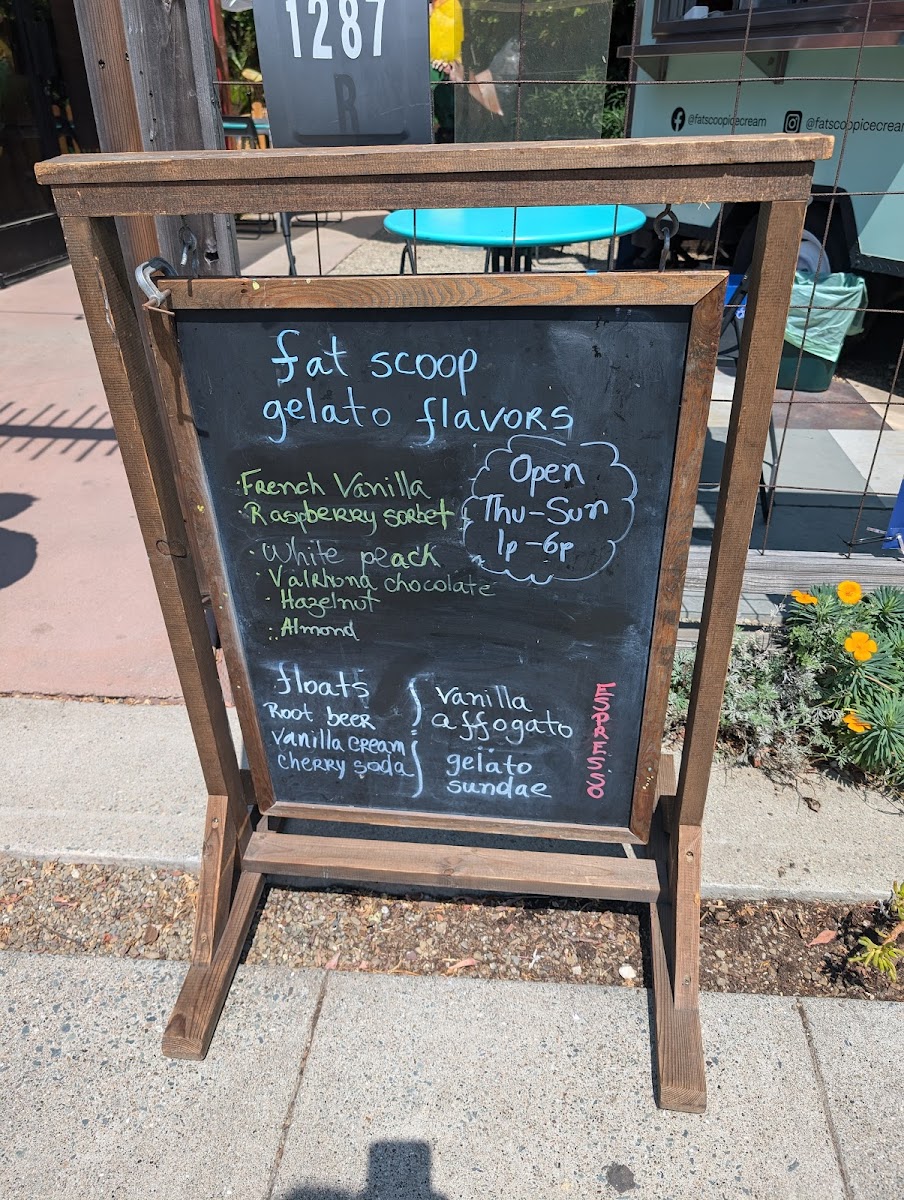 1287
R
@fatscoopicecream
@fatscoopicecream
fat scoop
gelato flavors
·French Vanilla
·Raspberry sorbet
·White peach
·Valrhona chocolate
·Hazelnut
·Almond
Open
Thu-Sun
1p-6p
floats
Root beer
Vanilla cream
cherry soda
Vanilla
affogato
gelato
sundae
ESPRESSO